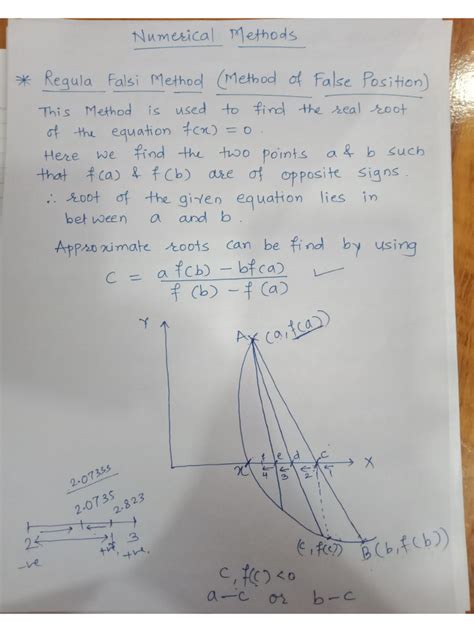 Numerical Methods
* Regula Falsi Method (Method of False Position)
This Method is used to find the real root
of the equation f(x) = 0.
Here we find the two points a & b such
that f(a) & f(b) are of opposite signs.
∴ root of the given equation lies in
between a and b.
Approximate roots can be find by using
C = a f(b) - b f(a) / f(b) - f(a) ✓
Y
A (a, f(a))
f e d c
x 4 3 2 1 X
2.07355
2.0735 2.823
2 3
-ve +ve +ve.
(c, f(c)) B (b, f(b))
c, f(c) < 0
a-c or b-c